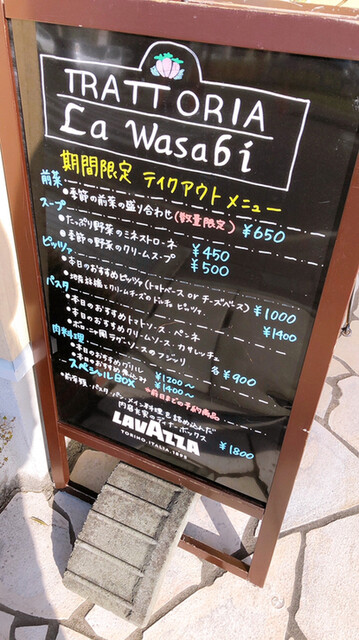 TRATTORIA
La Wasabi
期間限定 テイクアウトメニュー
前菜
・季節の前菜の盛り合わせ(数量限定) ¥650
スープ
・たっぷり野菜のミネストローネ ¥450
・季節の野菜のクリームスープ ¥500
ピッツァ
・本日のおすすめピッツァ(トマトベース or チーズベース) ¥1000
クリームチーズの ピッツァ ¥1400
パスタ
・本日のおすすめトマトソース・ペンネ
・本日のおすすめクリームソース・カサレッチェ
・ボロネーゼ風ラグーソースのフジッリ 各¥900
肉料理
・本日のおすすめグリル ¥1200〜
・本日のおすすめ煮込み ¥1400〜
スペシャルBOX *前日までの予約商品
・前菜・パスタ・パン・メイン料理を詰め込んだ
ディナーボックス ¥1800
LAVAZZA
TORINO, ITALIA, 1895